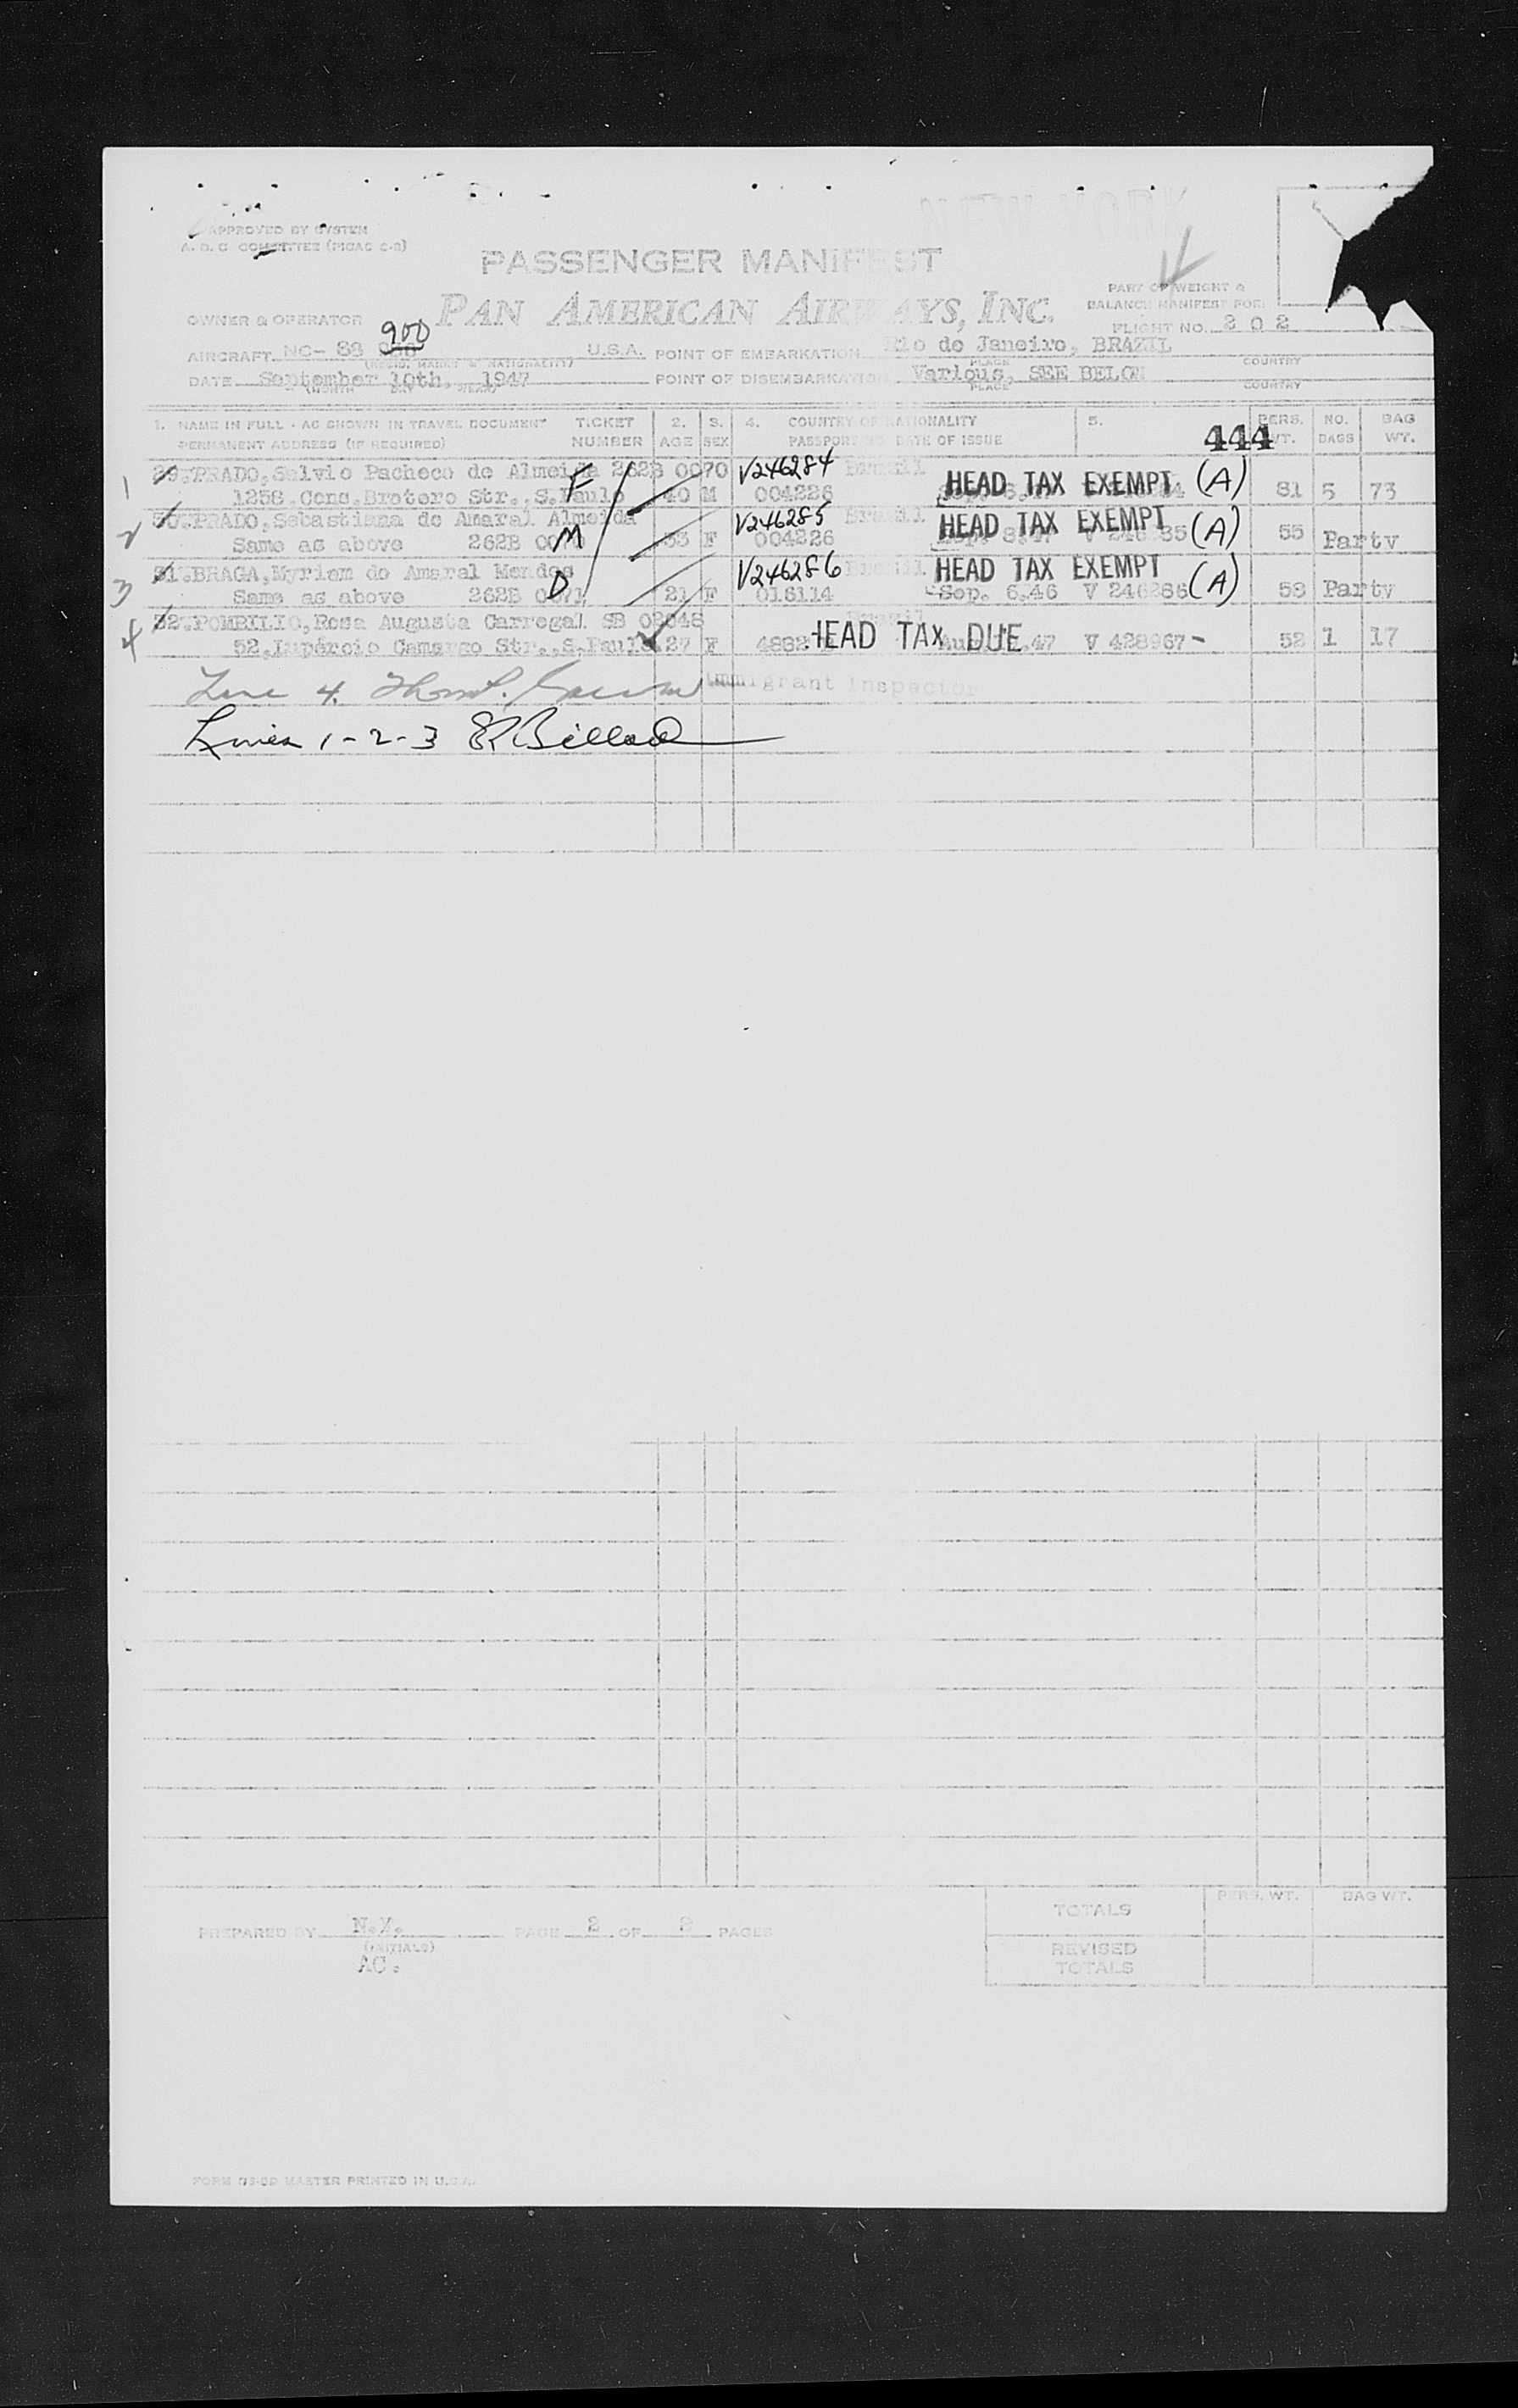 APPROVED BY SYSTEM NEW YORK
A. D. C COMMITTEE (PICAC C-3)
PASSENGER MANIFEST
PART OF WEIGHT &
BALANCE MANIFEST FOR:
OWNER & OPERATOR PAN AMERICAN AIRWAYS, INC. FLIGHT NO. 202
900
AIRCRAFT NC- 88 U.S.A. POINT OF EMBARKATION Rio de Janeiro, BRAZIL
PLACE COUNTRY
DATE September 10th, 1947 POINT OF DISEMBARKATION Various, SEE BELOW
(MONTH DAY YEAR) PLACE COUNTRY
1. NAME IN FULL - AS SHOWN IN TRAVEL DOCUMENT TICKET 2. 3. 4. COUNTRY OF NATIONALITY 5. PERS. NO. BAG
PERMANENT ADDRESS (IF REQUIRED) NUMBER AGE SEX PASSPORT NO. DATE OF ISSUE 444 WT. BAGS WT.
1 29.PRADO,Salvio Pacheco de Almeida 262B 0070 V246284 Brazil
1258.Cons.Brotero Str.,S.Paulo F 40 M 004226 HEAD TAX EXEMPT (A) 81 5 73
2 30.PRADO,Sebastiana do Amaral Almeida V246285 Brazil
Same as above 262B M F 004226 HEAD TAX EXEMPT (A) 55 Party
3 31.BRAGA,Myriam do Amaral Mendes V246286 Brazil HEAD TAX EXEMPT
Same as above 262B 0071 D 21 F 016114 Sep. 6,46 V 246286 (A) 53 Party
4 32.POMBILIO,Rosa Augusta Carregal SB 02048 Brazil
52,Lupércio Camargo Str.,S.Paulo 27 F HEAD TAX DUE 47 V 428967 - 52 1 17
Line 4. Immigrant Inspector
Lines 1-2-3
TOTALS PERS. WT. BAG WT.
PREPARED BY N.Y. PAGE 2 OF 2 PAGES
(INITIALS) REVISED
AC. TOTALS
MASTER PRINTED IN U.S.A.